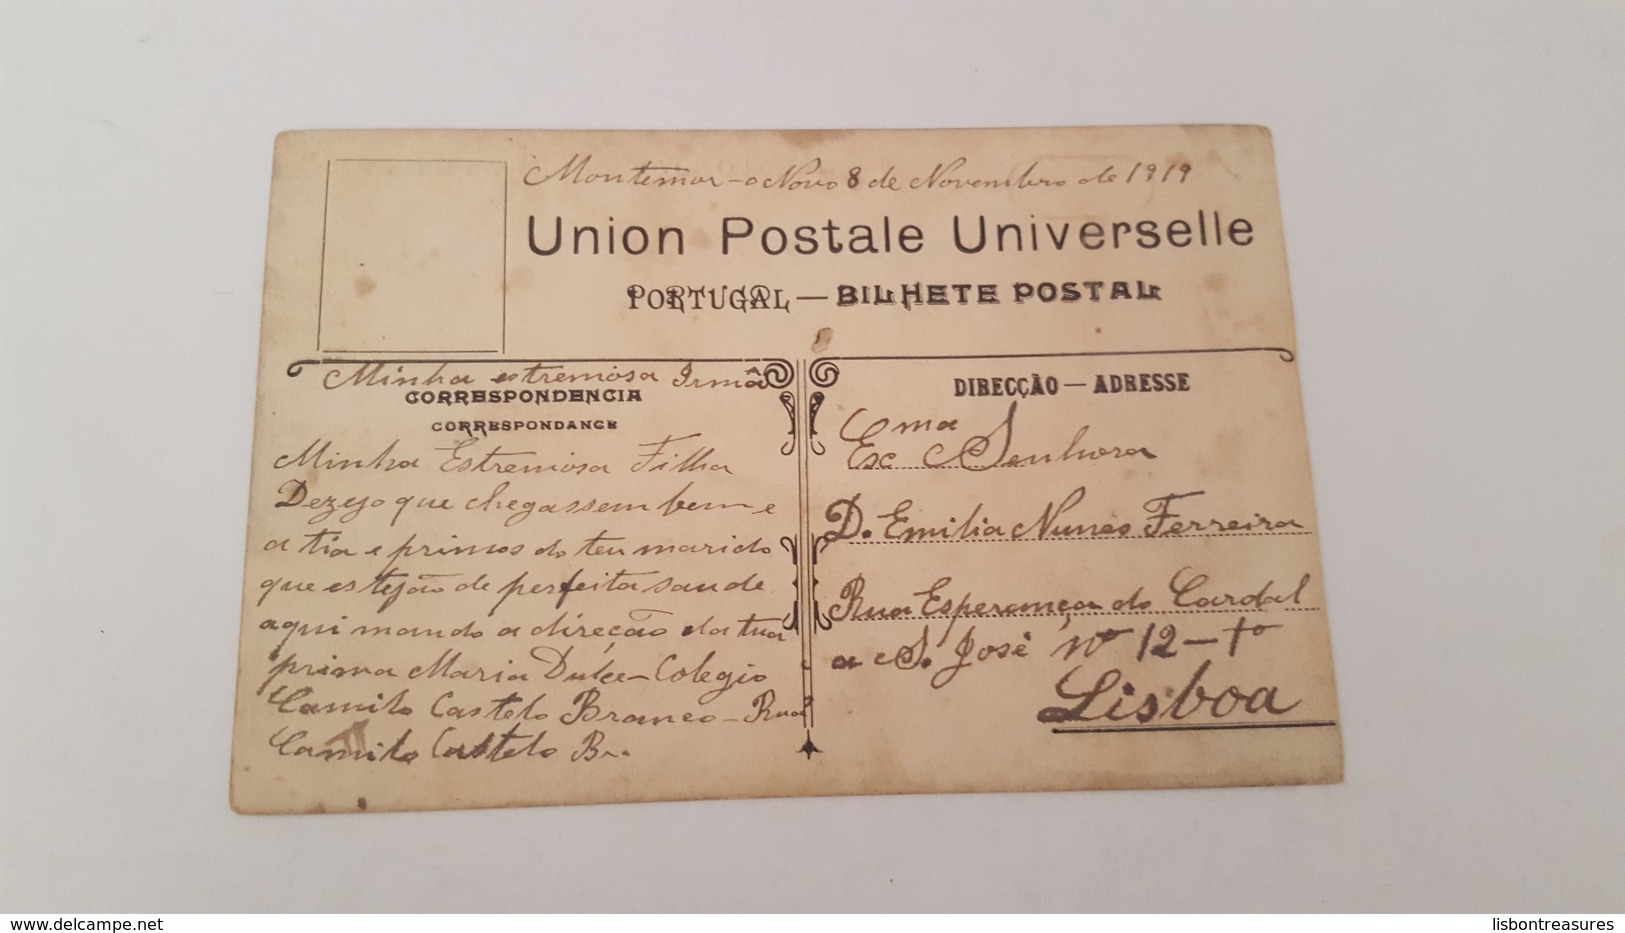 Montemor-o Novo 8 de Novembro de 1919
Union Postale Universelle
PORTUGAL — BILHETE POSTAL
Minha estremosa Irmã
CORRESPONDENCIA
CORRESPONDANCE
Minha Estremosa Filha
Dezejo que chegassem bem e
a tia e primos do teu marido
que estejão de perfeita saude
aqui mando a direção da tua
prima Maria Dulce - Colegio
Camilo Castelo Branco - Rua
Camilo Castelo Br.
DIRECÇÃO — ADRESSE
Exc ma Senhora
D. Emilia Nunes Ferreira
Rua Esperança do Cardal
a S. José nº 12-1º
Lisboa
http://www.delcampe.net
lisbontreasures